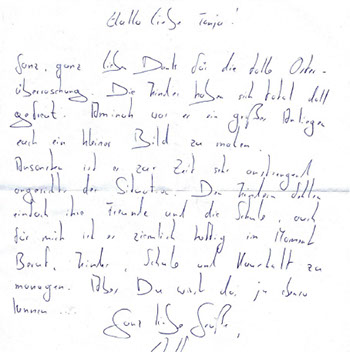 Hallo liebe Tanja!
Ganz, ganz lieben Dank für die tolle Oster-
überraschung. Die Kinder haben sich total doll
gefreut. war es ein großes Anliegen
euch ein kleines Bild zu malen.
Ansonsten ist es zur Zeit sehr anstrengend
angesichts der Situation. Den Kindern fehlen
einfach ihre Freunde und die Schule, auch
für mich ist es ziemlich heftig im Moment
Beruf, Kinder, Schule und Haushalt zu
managen. Aber Du wirst das ja ebenso
kennen ...
Ganz liebe Grüße,